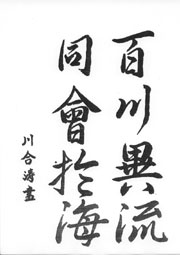 百川異流
同會於海
川合濤畫